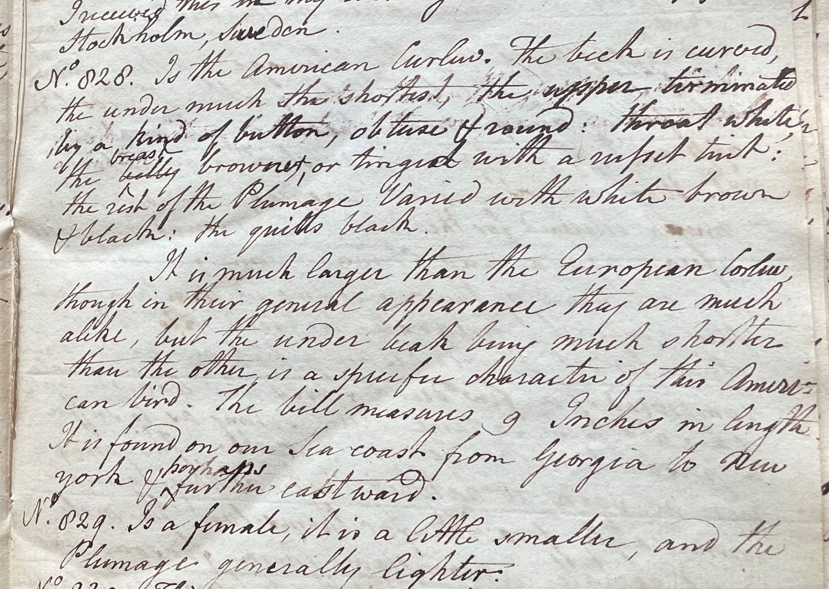 I received this in my
Stockholm, Sweden.
No. 828. Is the American Curlew. The beek is curved,
the under much the shortest, the upper terminated
by a kind of button, obtuse & round: throat white,
breast
the belly brownest, or tinged with a rufset tint:
the rest of the Plumage Varied with white brown
& black: the quills black.
It is much larger than the European Corlew,
though in their general appearance they are much
alike, but the under beak being much shorter
than the other is a specific character of this Ameri-
can bird. The bill measures 9 Inches in length.
It is found on our Sea coast from Georgia to New
perhaps
york & further eastward.
No. 829. Is a female, it is a little smaller, and the
Plumage generally lighter.
No.